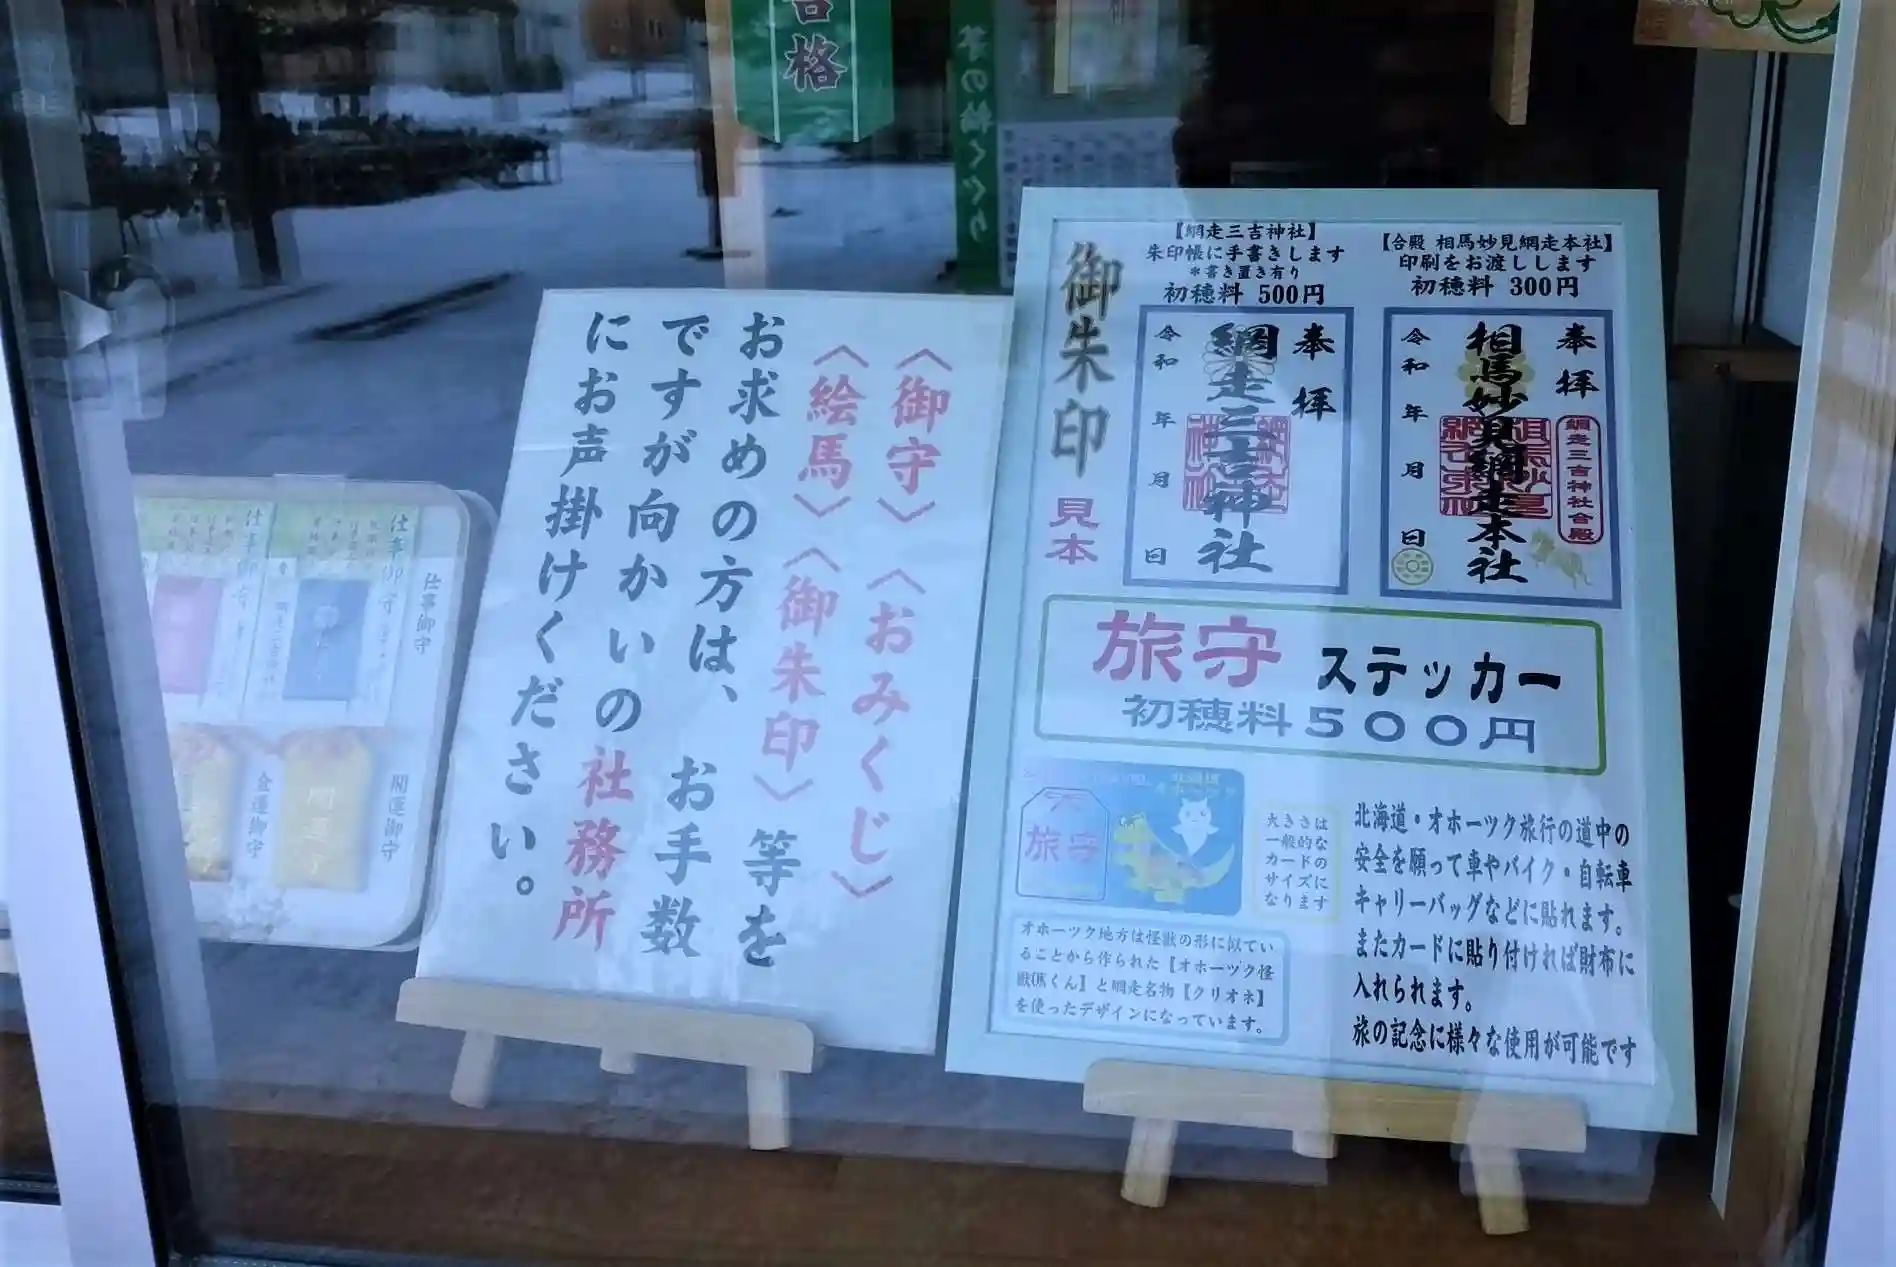 合格
茅の輪くぐり
〈御守〉〈おみくじ〉
〈絵馬〉〈御朱印〉等を
お求めの方は、お手数
ですが向かいの社務所
にお声掛けください。
仕事御守
仕事御守
仕事御守
開運御守
金運御守
開運守
御朱印
見本
【網走三吉神社】
朱印帳に手書きします
*書き置き有り
初穂料 500円
奉拝
網走三吉神社
令和 年 月 日
【合殿 相馬妙見網走本社】
印刷をお渡しします
初穂料 300円
奉拝
網走三吉神社合殿
相馬妙見網走本社
令和 年 月 日
旅守 ステッカー
初穂料500円
北海道
旅守
大きさは
一般的な
カードの
サイズに
なります
オホーツク地方は怪獣の形に似てい
ることから作られた【オホーツク怪
獣OKくん】と網走名物【クリオネ】
を使ったデザインになっています。
北海道・オホーツク旅行の道中の
安全を願って車やバイク・自転車
キャリーバッグなどに貼れます。
またカードに貼り付ければ財布に
入れられます。
旅の記念に様々な使用が可能です